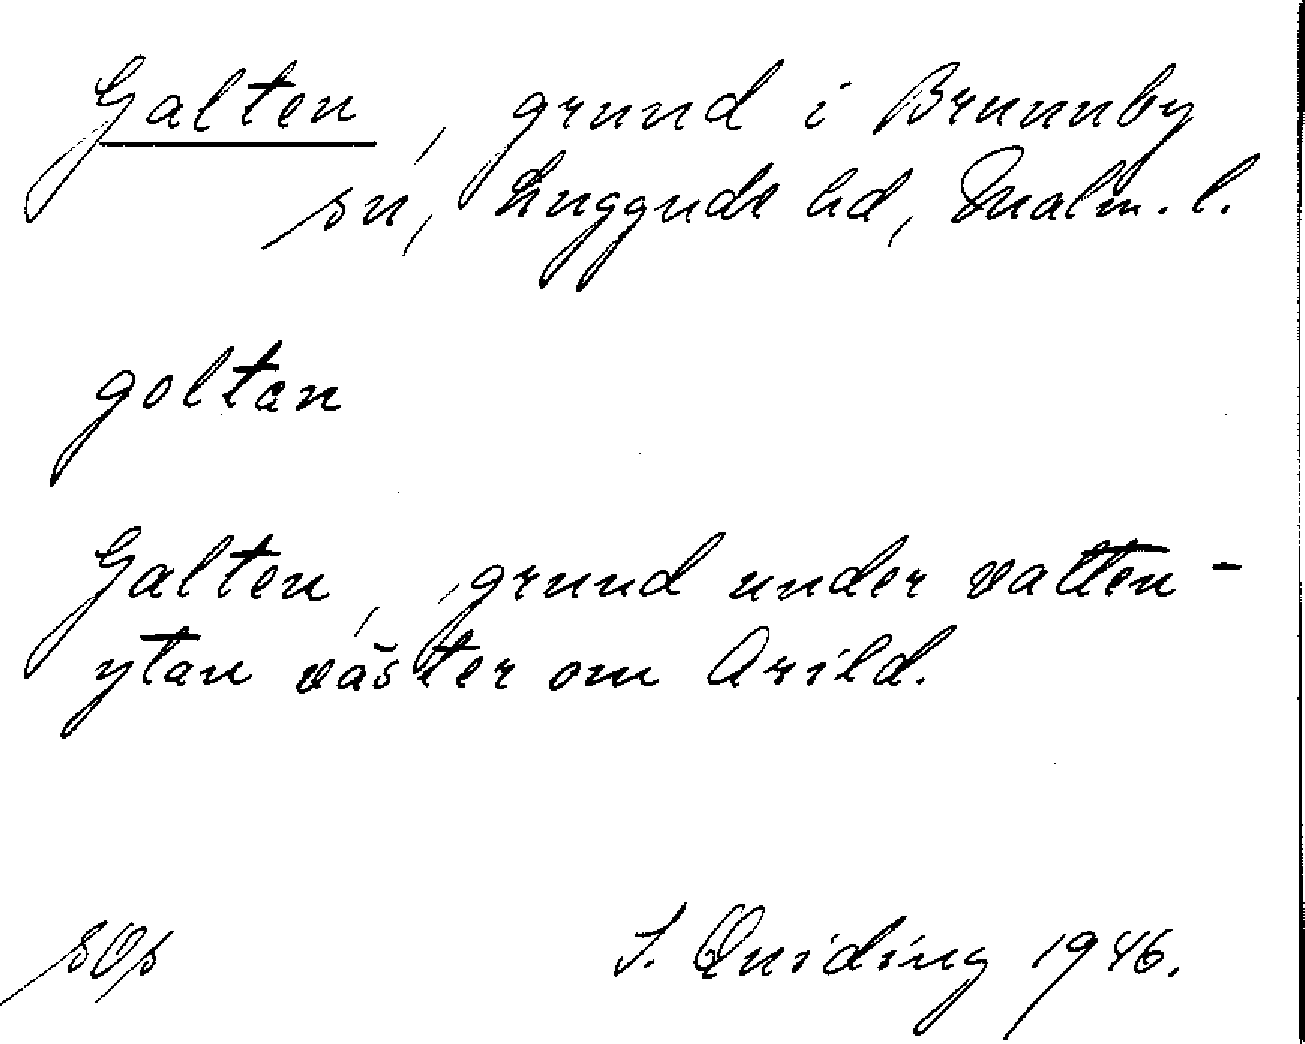 Galten, grund i Brunnby
sn, Luggude hd, Malm. l.
goltan
Galten, grund under vatten-
ytan väster om Arild.
S. Quiding 1946.